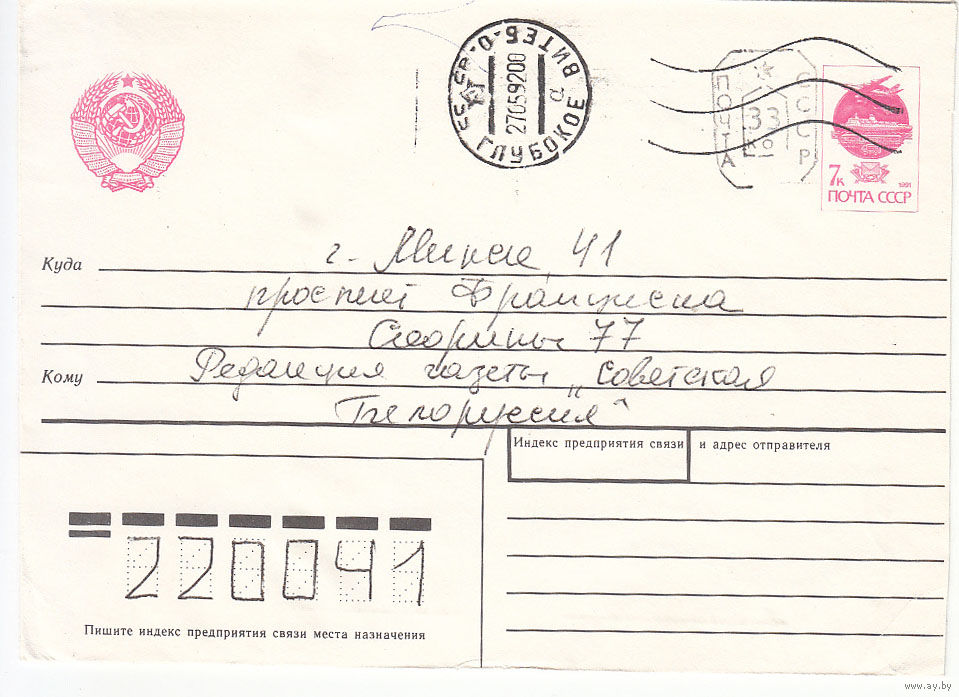 ВИТЕБ-О
27059200
а
ГЛУБОКОЕ
ПОЧТА
СССР
33
ко
7к
1991
ПОЧТА СССР
Куда г. Минск, 41
проспект Франциска
Скорины 77
Кому Редакция газеты „Советская
Белоруссия"
Индекс предприятия связи и адрес отправителя
220041
Пишите индекс предприятия связи места назначения
www.ay.by